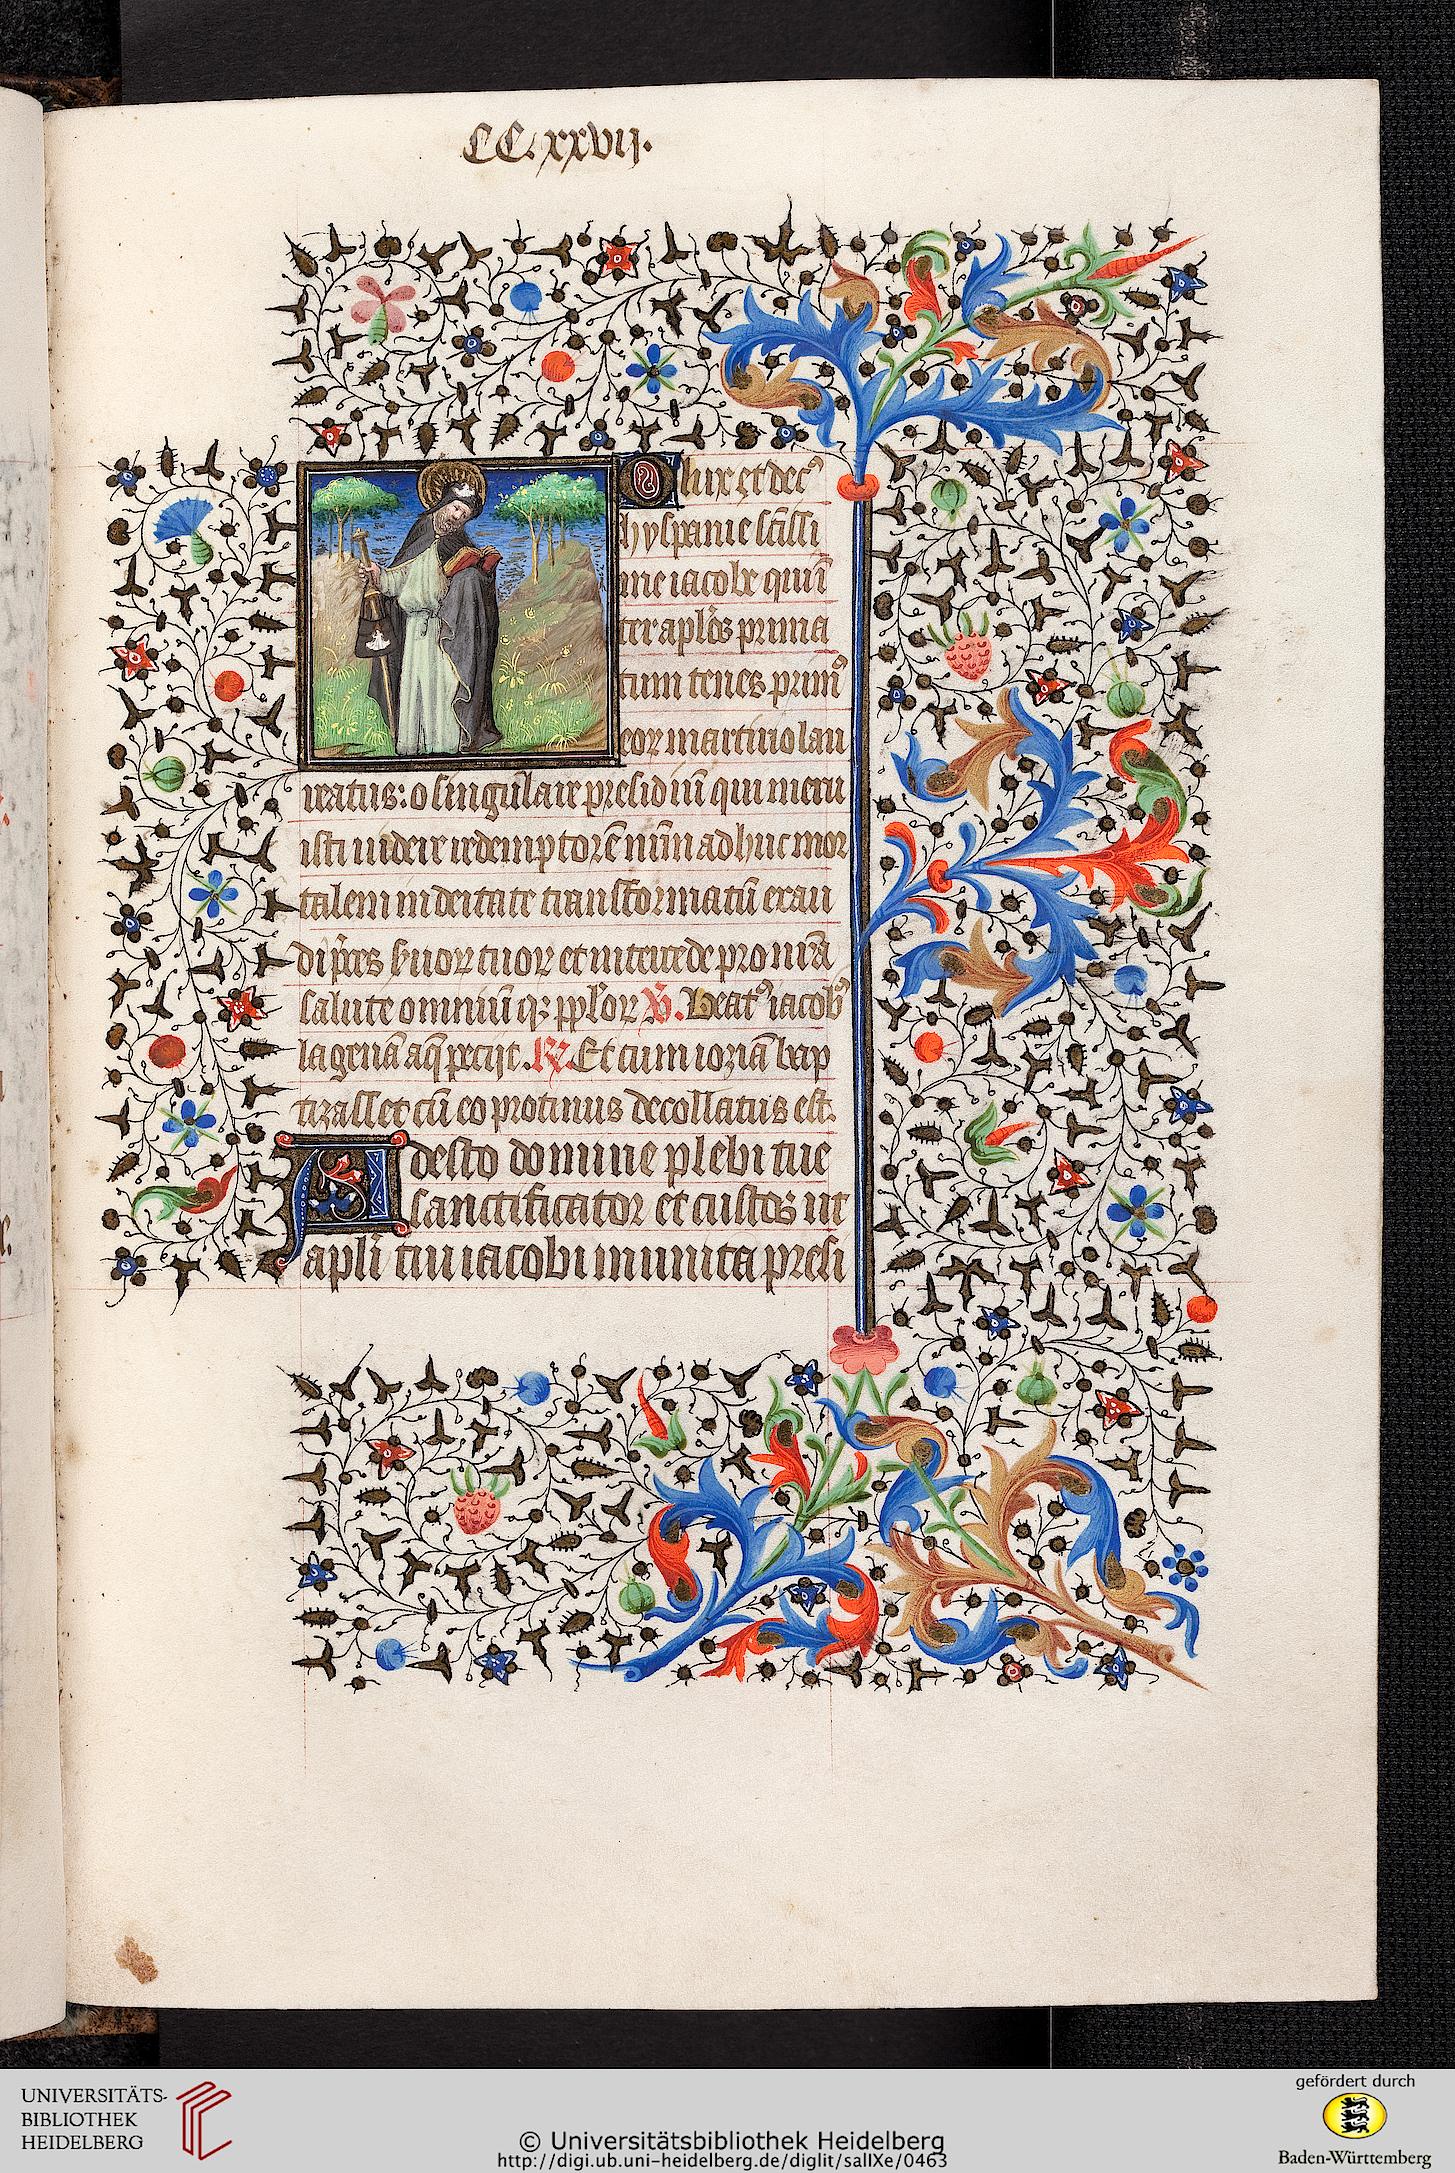 CC.xxvij.
O lux et decꝰ
hyspanie sc̄issi
me iacobe qui ī
ter apl̄os prima
tum tenes primꝰ
eoꝝ martirio lau
reatus: o singulare presidiū qui meru
isti uidere redemptorē nr̄m adhuc mor
talem in deitate transformatū exau
di p̄ces ẜuoꝝ tuoꝝ et intercede pro nr̄a
salute omniū qꝫ ppl̄oꝝ ℣. Beatꝰ iacobꝰ
lagenā aq̄ petijt. ℟. Et cum ioziā bap
tizasset cū eo protinus decollatus est.
Adesto domine plebi tue
sanctificator et custos ut
apl̄i tui iacobi munita presi
UNIVERSITÄTS-
BIBLIOTHEK
HEIDELBERG
© Universitätsbibliothek Heidelberg
http://digi.ub.uni-heidelberg.de/diglit/salIXe/0463
gefördert durch
Baden-Württemberg